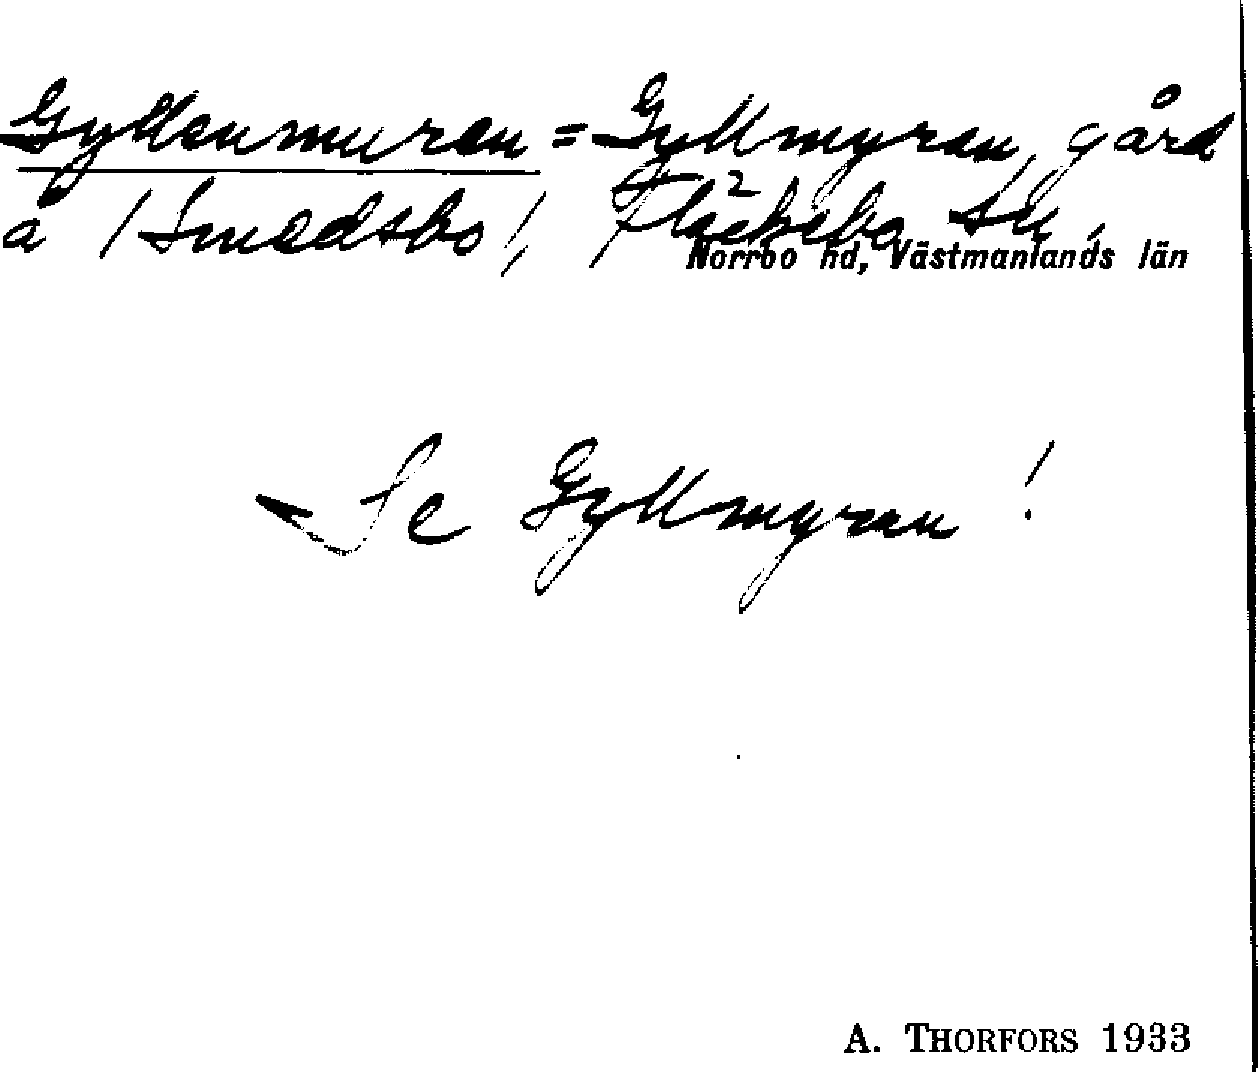 Gyllenmuren = Gyllmyren, gård
å /Smedsbo/, Fläckebo sn,
Norrbo hd, Västmanlands län
Se Gyllmyren!
A. THORFORS 1933